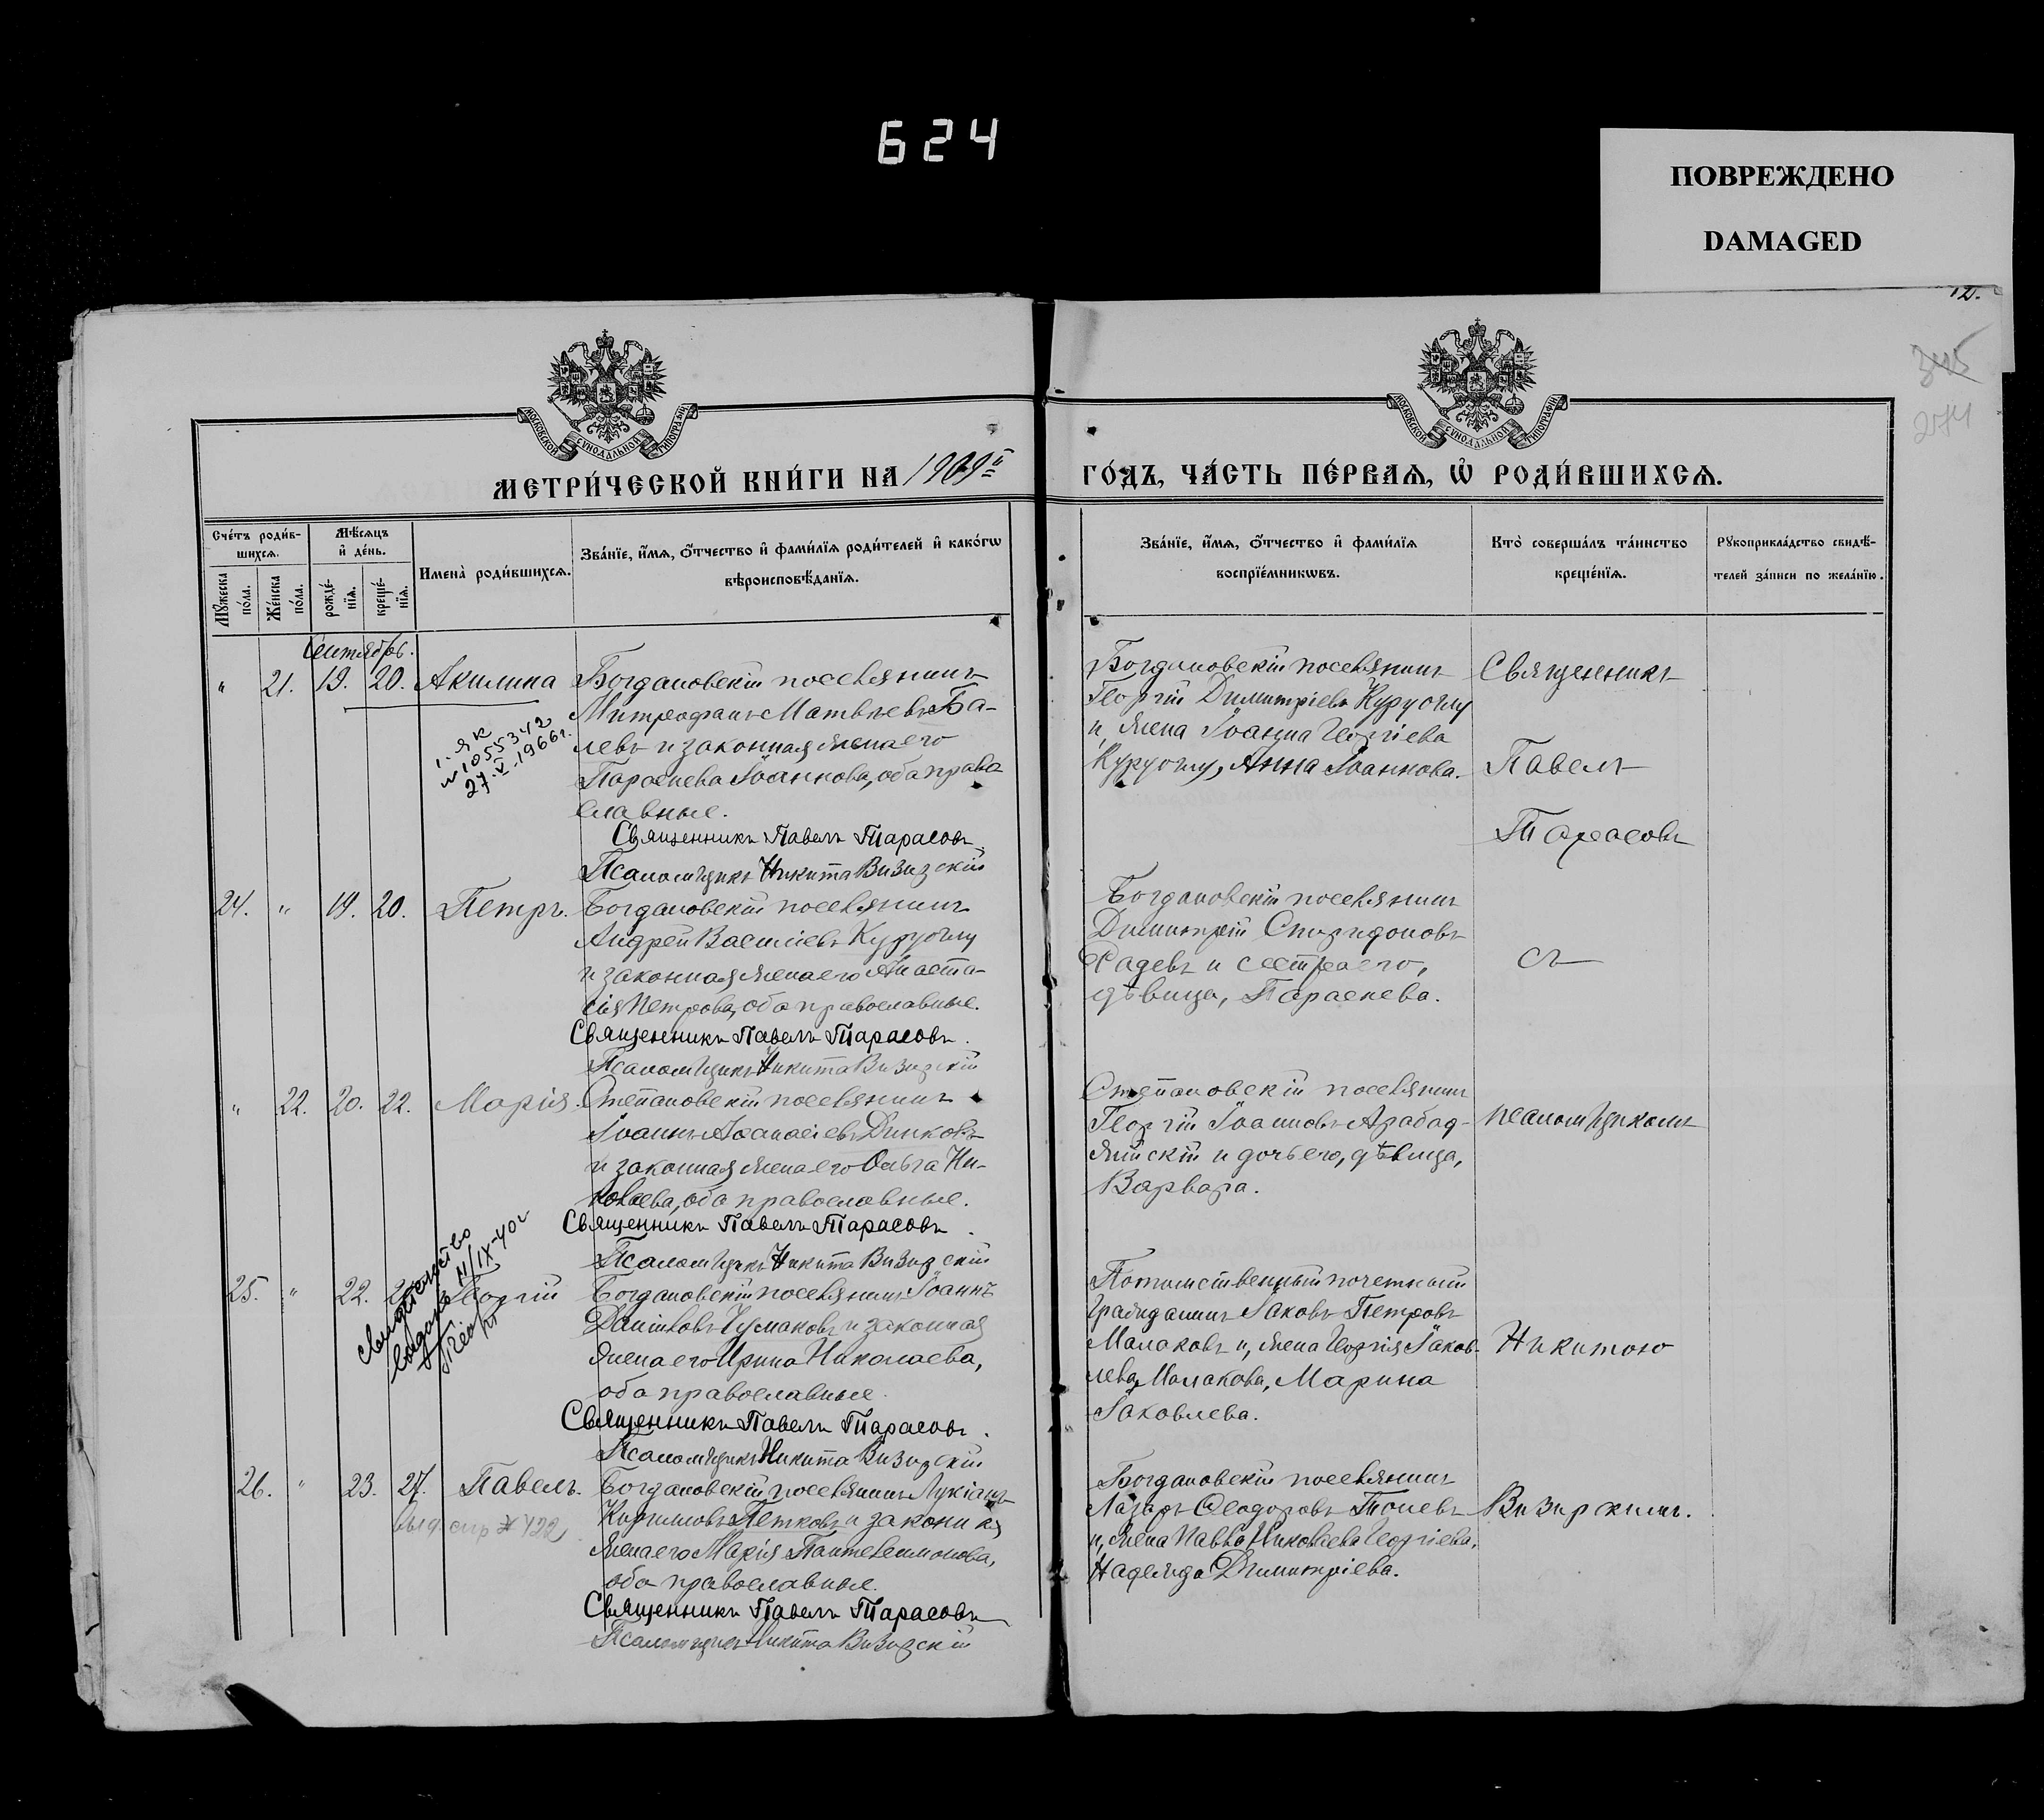 624
ПОВРЕЖДЕНО
DAMAGED
12.
345
274
МОСКОВСКОЙ СѴНОДАЛЬНОЙ ТИПОГРАФІИ
МОСКОВСКОЙ СѴНОДАЛЬНОЙ ТИПОГРАФІИ
МЕТРИ́ЧЕСКОЙ КНИ́ГИ НА 1909й
ГО́ДЪ, ЧА́СТЬ ПЕ́РВАѦ, Ѡ҆ РОДИ́ВШИХСѦ.
Сче́тъ роди́в-
шихсѧ.
Мѣ́сѧцъ
и҆ де́нь.
Мꙋ́жеска по́ла.
Же́нска по́ла.
рожде́-
нїѧ.
креще́-
нїѧ.
Имена̀ роди́вшихсѧ.
Зва́нїе, и҆́мѧ, ѻ҆́тчество и҆ фами́лїѧ роди́телей и҆ како́гѡ
вѣроисповѣ́данїѧ.
Зва́нїе, и҆́мѧ, ѻ҆́тчество и҆ фами́лїѧ
воспрїе́мникѡвъ.
Кто̀ соверша́лъ та́инство
креще́нїѧ.
Рꙋкоприкла́дство свидѣ́-
телей за́писи по жела́нїю.
Сентябрь.
" 21. 19. 20. Акилина
Богдановскій поселянинъ
Митрофанъ Матвѣевъ Ба-
левъ и законная жена его
Параскева Іоаннова, оба право
славные.
Священникъ Павелъ Тарасовъ
Псаломщикъ Никита Визирскій
1055342
27-V-1966г.
Богдановскій поселянинъ
Георгій Димитріевъ Куруоглу
и, жена Іоанна Георгіева
Куруоглу, Анна Іоаннова.
Священникъ
Павелъ
Тарасовъ
24. " 19. 20. Петръ.
Богдановскій поселянинъ
Андрей Василіевъ Куруоглу
и законная жена его Анаста-
сія Петрова, оба православные.
Священникъ Павелъ Тарасовъ.
Псаломщикъ Никита Визирскій
Богдановскій поселянинъ
Димитрій Спиридоновъ
Радевъ и сестра его,
дѣвица, Параскева.
съ
" 22. 20. 22. Марія.
Степановскій поселянинъ
Іоаннъ Аѳанасіевъ Динковъ
и законная жена его Ольга Ни-
колаева, оба православные.
Священникъ Павелъ Тарасовъ.
Псаломщикъ Никита Визирскій
Степановскій поселянинъ
Георгій Іоанновъ Арабад-
жійскій и дочь его, дѣвица,
Варвара.
псаломщикомъ
25. " 22. Георгій
свидетельство
выдано 11/IX-40г
Богдановскій поселянинъ Іоаннъ
Даніиловъ Чумаковъ и законная
жена его Ирина Николаева,
оба православные.
Священникъ Павелъ Тарасовъ.
Псаломщикъ Никита Визирскій
Потомственный почетный
гражданинъ Іаковъ Петровъ
Малаковъ и, жена Георгія Іаков-
лева Малакова, Марина
Іаковлева.
Никитою
26. " 23. 27. Павелъ.
выд. спр № 422
Богдановскій поселянинъ Лукіанъ
Кирилловъ Петковъ и законная
жена его Марія Пантелеимонова,
оба православные.
Священникъ Павелъ Тарасовъ
Псаломщикъ Никита Визирскій
Богдановскій поселянинъ
Лазарь Ѳеодоровъ Топевъ
и, жена Павла Николаева Георгіева,
Надежда Димитріева.
Визирскимъ.